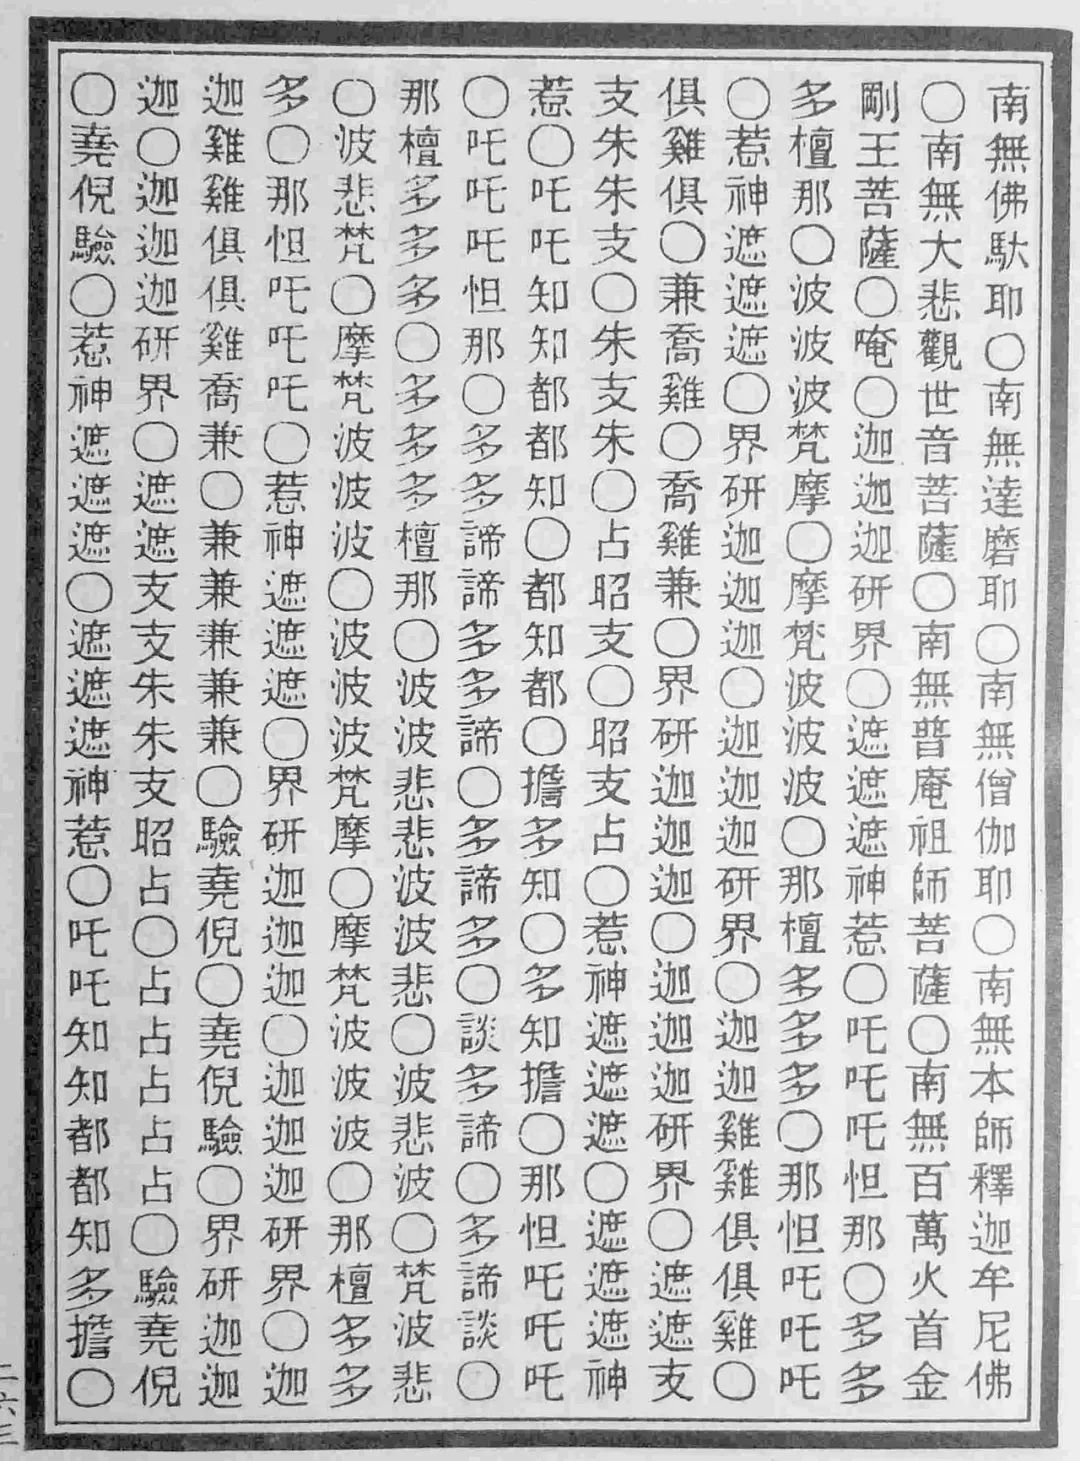 南無佛馱耶〇南無達磨耶〇南無僧伽耶〇南無本師釋迦牟尼佛
〇南無大悲觀世音菩薩〇南無普庵祖師菩薩〇南無百萬火首金
剛王菩薩〇唵〇迦迦迦研界〇遮遮遮神惹〇吒吒吒怛那〇多多
多檀那〇波波波梵摩〇摩梵波波波〇那檀多多多〇那怛吒吒吒
〇惹神遮遮遮〇界研迦迦迦〇迦迦迦研界〇迦迦雞雞俱俱雞〇
俱雞俱〇兼喬雞〇喬雞兼〇界研迦迦迦〇迦迦迦研界〇遮遮支
支朱朱支〇朱支朱〇占昭支〇昭支占〇惹神遮遮遮〇遮遮遮神
惹〇吒吒知知都都知〇都知都〇擔多知〇多知擔〇那怛吒吒吒
〇吒吒吒怛那〇多多諦諦多多諦〇多諦多〇談多諦〇多諦談〇
那檀多多多〇多多多檀那〇波波悲悲波波悲〇波悲波〇梵波悲
〇波悲梵〇摩梵波波波〇波波波梵摩〇摩梵波波波〇那檀多多
多〇那怛吒吒吒〇惹神遮遮遮〇界研迦迦迦〇迦迦迦研界〇迦
迦雞雞俱俱雞喬兼〇兼兼兼兼兼〇驗堯倪〇堯倪驗〇界研迦迦
迦〇迦迦迦研界〇遮遮支支朱朱支昭占〇占占占占占〇驗堯倪
〇堯倪驗〇惹神遮遮遮〇遮遮遮神惹〇吒吒知知都都知多擔〇
二六三